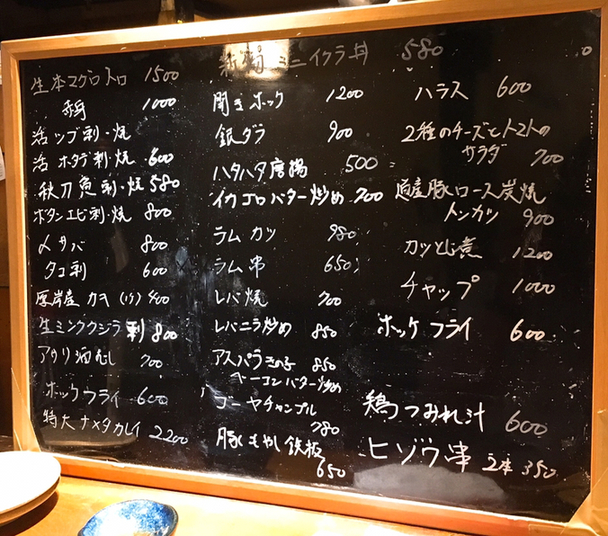 生本マグロトロ 1500
赤身 1000
活ツブ刺・焼
活ホタテ刺・焼 600
秋刀魚刺・焼 580
ボタンエビ刺・焼 800
〆サバ 800
タコ刺 600
厚岸産カキ(1ケ) 400
生ミンククジラ刺 800
アサリ酒むし 700
ホッケフライ 600
特大ナメタカレイ 2200
ミニイクラ丼 580
開きホッケ 1200
銀ダラ 900
ハタハタ唐揚 500
イカゴロバター炒め 700
ラムカツ 980
ラム串 650
レバ焼 700
レバニラ炒め 850
アスパラきの子 850
ベーコンバター炒め
ゴーヤチャンプル
780
豚もやし鉄板
650
ハラス 600
2種のチーズとトマトの
サラダ 700
道産豚ロース炭焼
トンカツ 900
カツとじ煮 1200
チャップ 1000
ホッケフライ 600
鶏つみれ汁 600
ヒゾウ串 2本 350